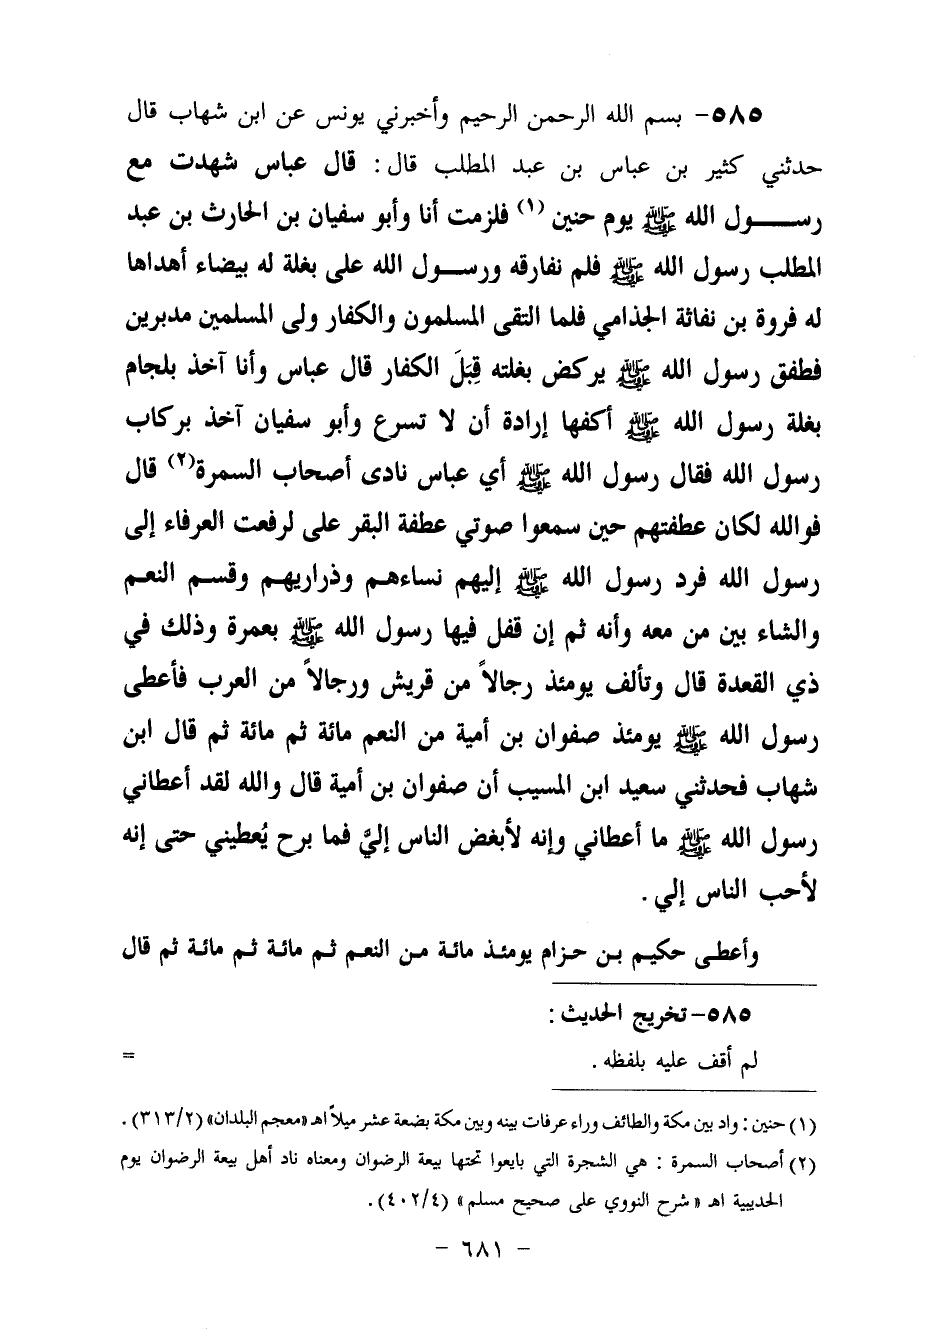 ٥٨٥- بسم الله الرحمن الرحيم وأخبرني يونس عن ابن شهاب قال
حدثني كثير بن عباس بن عبد المطلب قال : قال عباس شهدت مع
رســـول الله ﷺ يوم حنين (١) فلزمت أنا وأبو سفيان بن الحارث بن عبد
المطلب رسول الله ﷺ فلم نفارقه ورســـول الله على بغلة له بيضاء أهداها
له فروة بن نفاثة الجذامي فلما التقى المسلمون والكفار ولى المسلمين مدبرين
فطفق رسول الله ﷺ يركض بغلته قِبَلَ الكفار قال عباس وأنا آخذ بلجام
بغلة رسول الله ﷺ أكفها إرادة أن لا تسرع وأبو سفيان آخذ بركاب
رسول الله فقال رسول الله ﷺ أي عباس نادى أصحاب السمرة(٢) قال
فوالله لكان عطفتهم حين سمعوا صوتي عطفة البقر على لرفعت العرفاء إلى
رسول الله فرد رسول الله ﷺ إليهم نساءهم وذراريهم وقسم النعم
والشاء بين من معه وأنه ثم إن قفل فيها رسول الله ﷺ بعمرة وذلك في
ذي القعدة قال وتألف يومئذ رجالاً من قريش ورجالاً من العرب فأعطى
رسول الله ﷺ يومئذ صفوان بن أمية من النعم مائة ثم مائة ثم قال ابن
شهاب فحدثني سعيد ابن المسيب أن صفوان بن أمية قال والله لقد أعطاني
رسول الله ﷺ ما أعطاني وإنه لأبغض الناس إليَّ فما برح يُعطيني حتى إنه
لأحب الناس إلي .
وأعطى حكيم بن حزام يومئذ مائة من النعم ثم مائة ثم مائة ثم قال
٥٨٥- تخريج الحديث :
لم أقف عليه بلفظه . =
(١) حنين : واد بين مكة والطائف وراء عرفات بينه وبين مكة بضعة عشر ميلاً اهـ «معجم البلدان» (٣١٣/٢) .
(٢) أصحاب السمرة : هي الشجرة التي بايعوا تحتها بيعة الرضوان ومعناه ناد أهل بيعة الرضوان يوم
الحديبية اهـ «شرح النووي على صحيح مسلم» (٤٠٢/٤) .
- ٦٨١ -